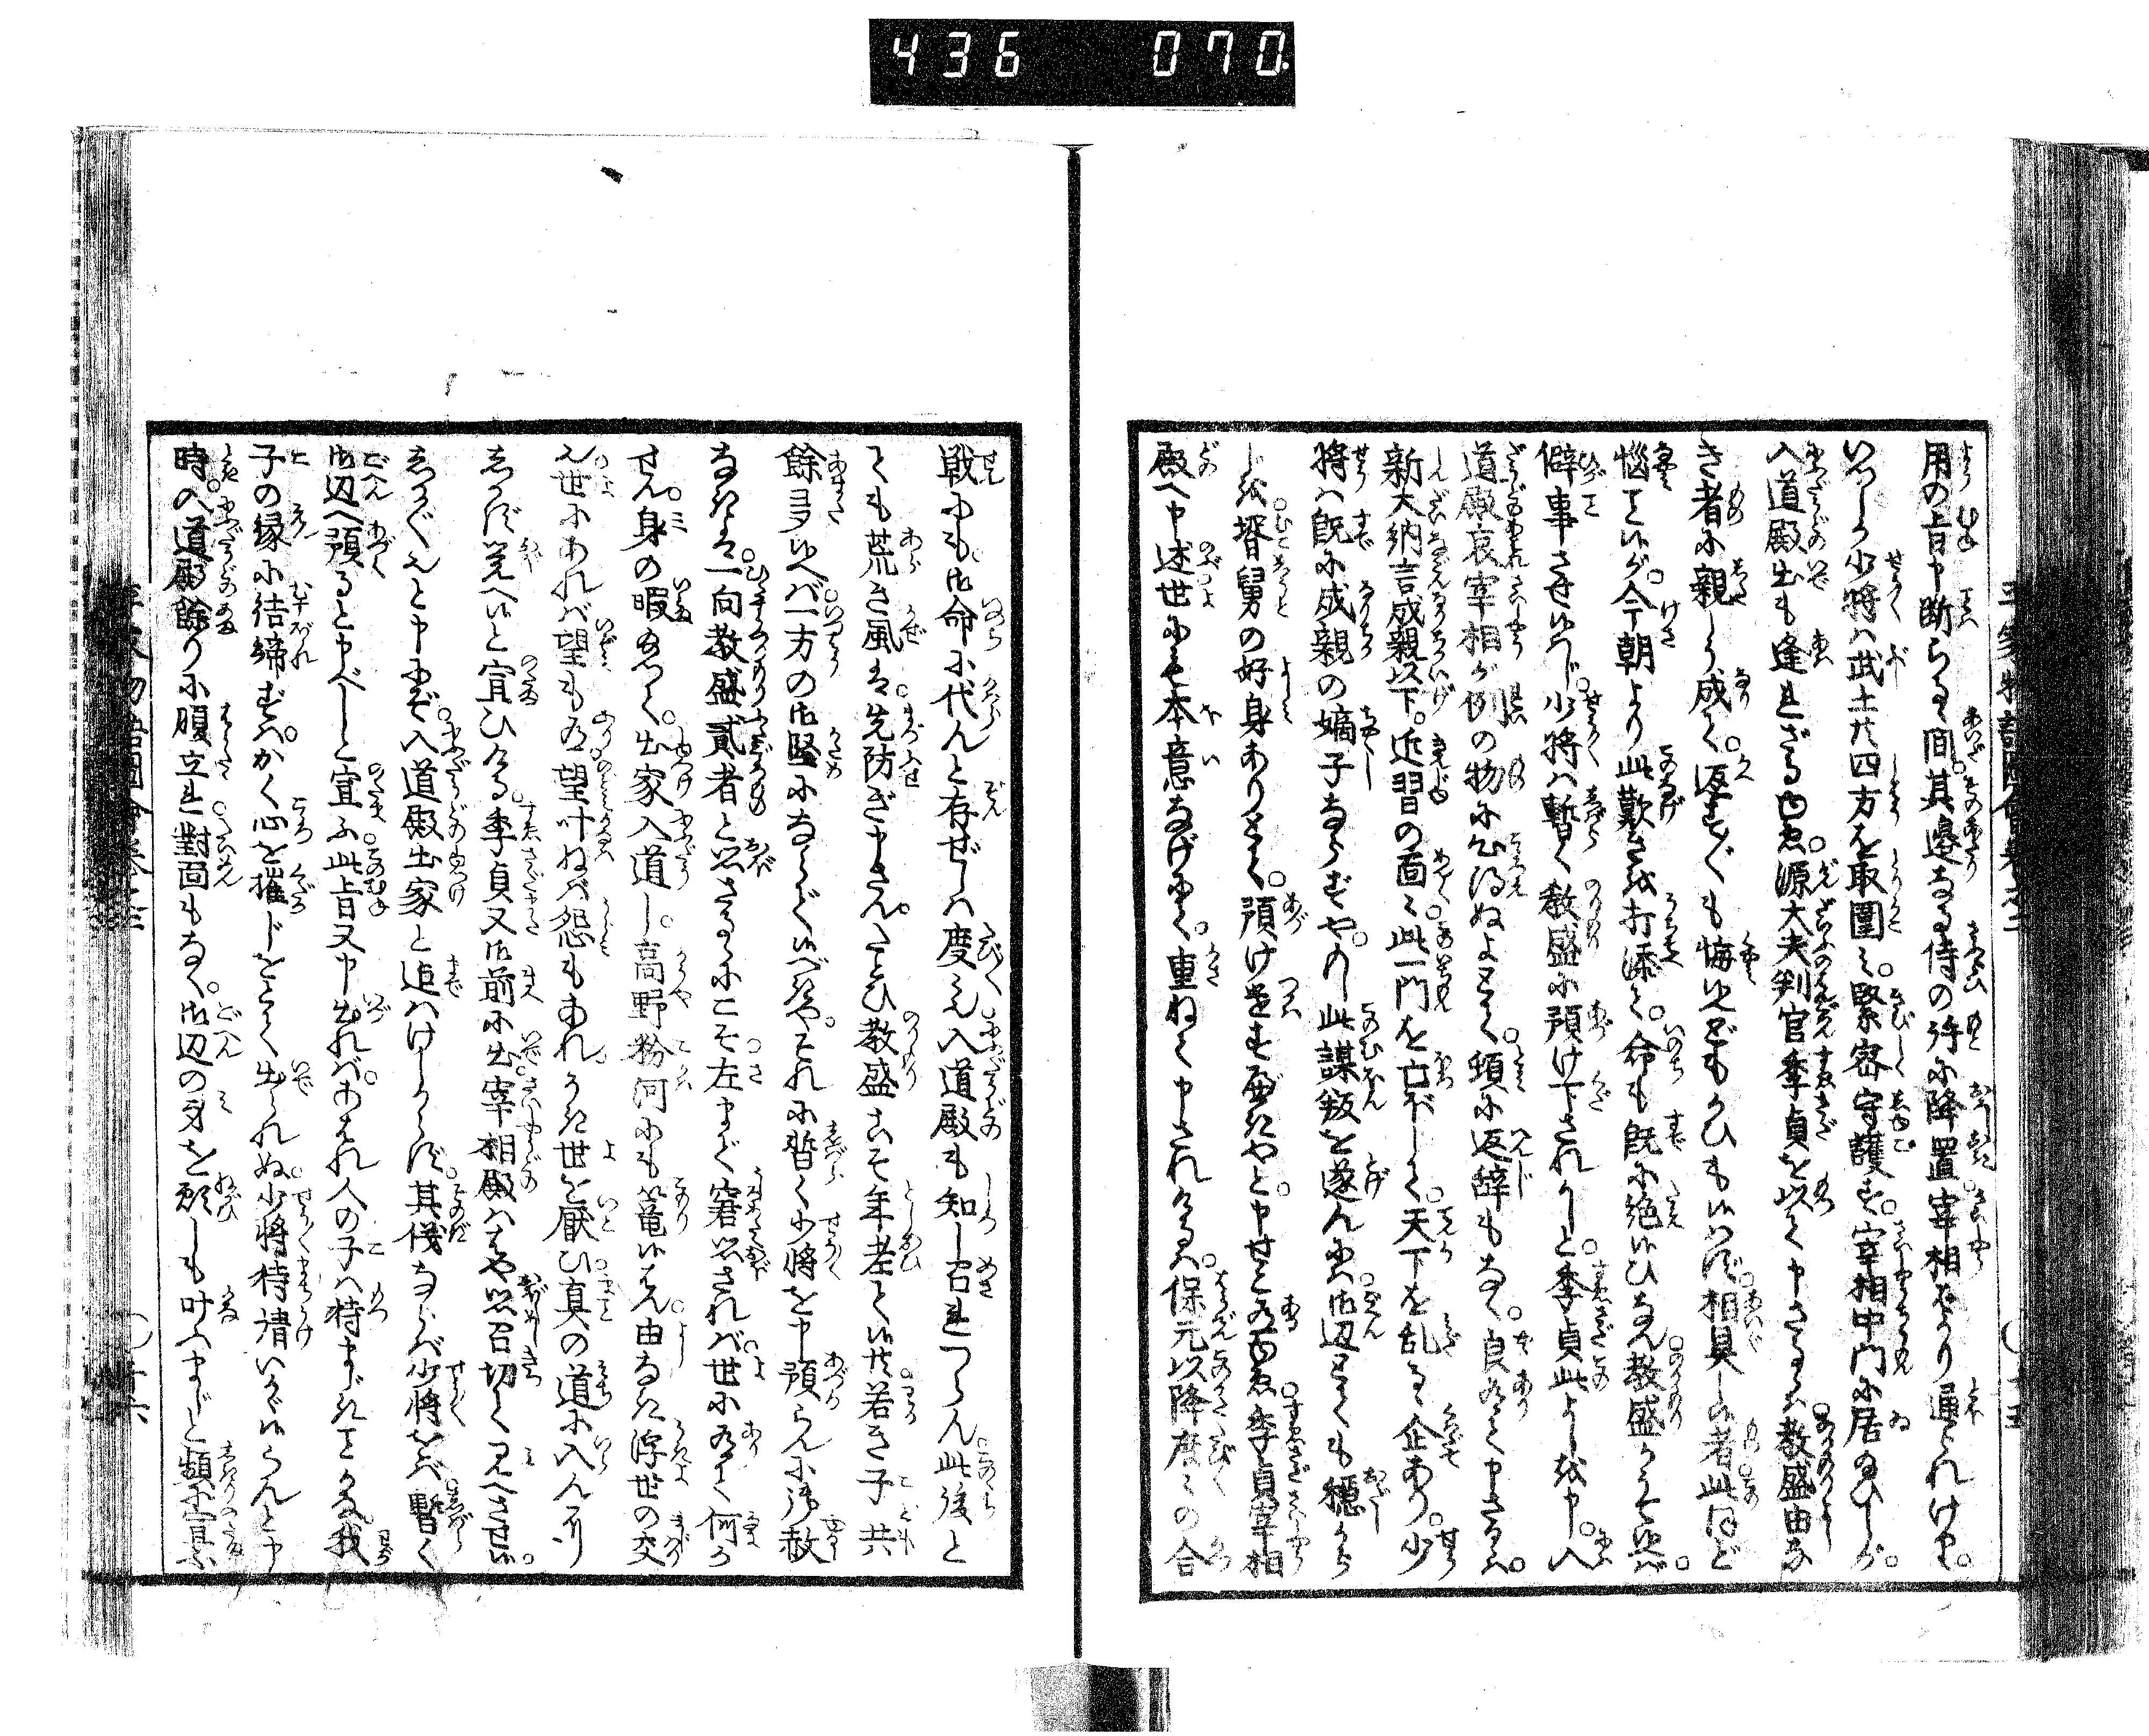 436 070.
用の旨申断らる間。其邉なる侍の許に降置宰相ばかり通られけり。
いつしか少将ハ武士共四方を取圍ミ。緊密守護す。宰相中門に居給ひしが。
入道殿出も逢れざる由え。源大夫判官季貞を以て申さるゝハ教盛由な
き者に親しう成て。返すがへすも悔候どもかひも候ハず。相具し候者此ほど
悩こと候が。今朝より此歎きを打添て。命も既に絶候ひなん教盛かうて候へバ。
僻事させ候ハじ。少将ハ暫く教盛に預け下されかしと。季貞此よしを申。入
道殿哀宰相が例の物に心得ぬよとて。頓に返辞もなし。良有て申さるゝハ。
新大納言成親以下。近習の面々此一門を亡ぼして。天下を乱る企あり。少
将ハ既に成親の嫡子ならずや。のし此謀叛を遂んにハ。御辺とても穏から
じを。聟舅の好身ありとて。預け遣すべきやと。申せと有ゆゑ。季貞宰相
殿へ申述世にも本意なげにて。重ねて申されけるハ。保元以降度々の合
戦にも。御命に代んと存ぜしハ度々。入道殿も知し召れつらん此後と
ても荒き風を。先防ぎ申さん。たとひ教盛こそ年老て候共。若き子共
餘多候へバ。一方の御堅にならで候べきや。それに暫く少将を申預らんに御赦
なきは。一向教盛貳者と思さるゝにこそ。左まで窘思されバ。世に有て何か
せん。身の暇給つて。出家入道し。高野粉河にも篭候はん。由なき浮世の交
え世にあれバ望も有。望叶ねバ怨もあれ。うき世を厭ひ。真の道に入んには
しかず覚へ候と宣ひける。季貞又御前に出。宰相殿ハはや思召切て見へさせ候。
しかるべくと申にぞ。入道殿出家と迄ハけしからず。其儀ならバ少将をバ暫く
御辺へ預ると申べしと宣ふ。此旨又申出れバ。あはれ人の子ハ持まじきことかな我
子の縁に結締ずバ。かく心を摧じをとて出られぬ。少将待請いかゞ候らんと申
時。入道殿餘りに腹立し對面もなく。御辺の事を願しも叶ふまじと頻に宣ふ